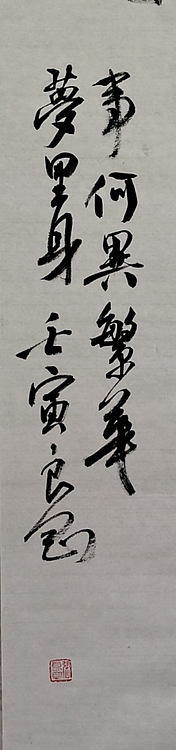 事何異繁華
夢里身 壬寅良